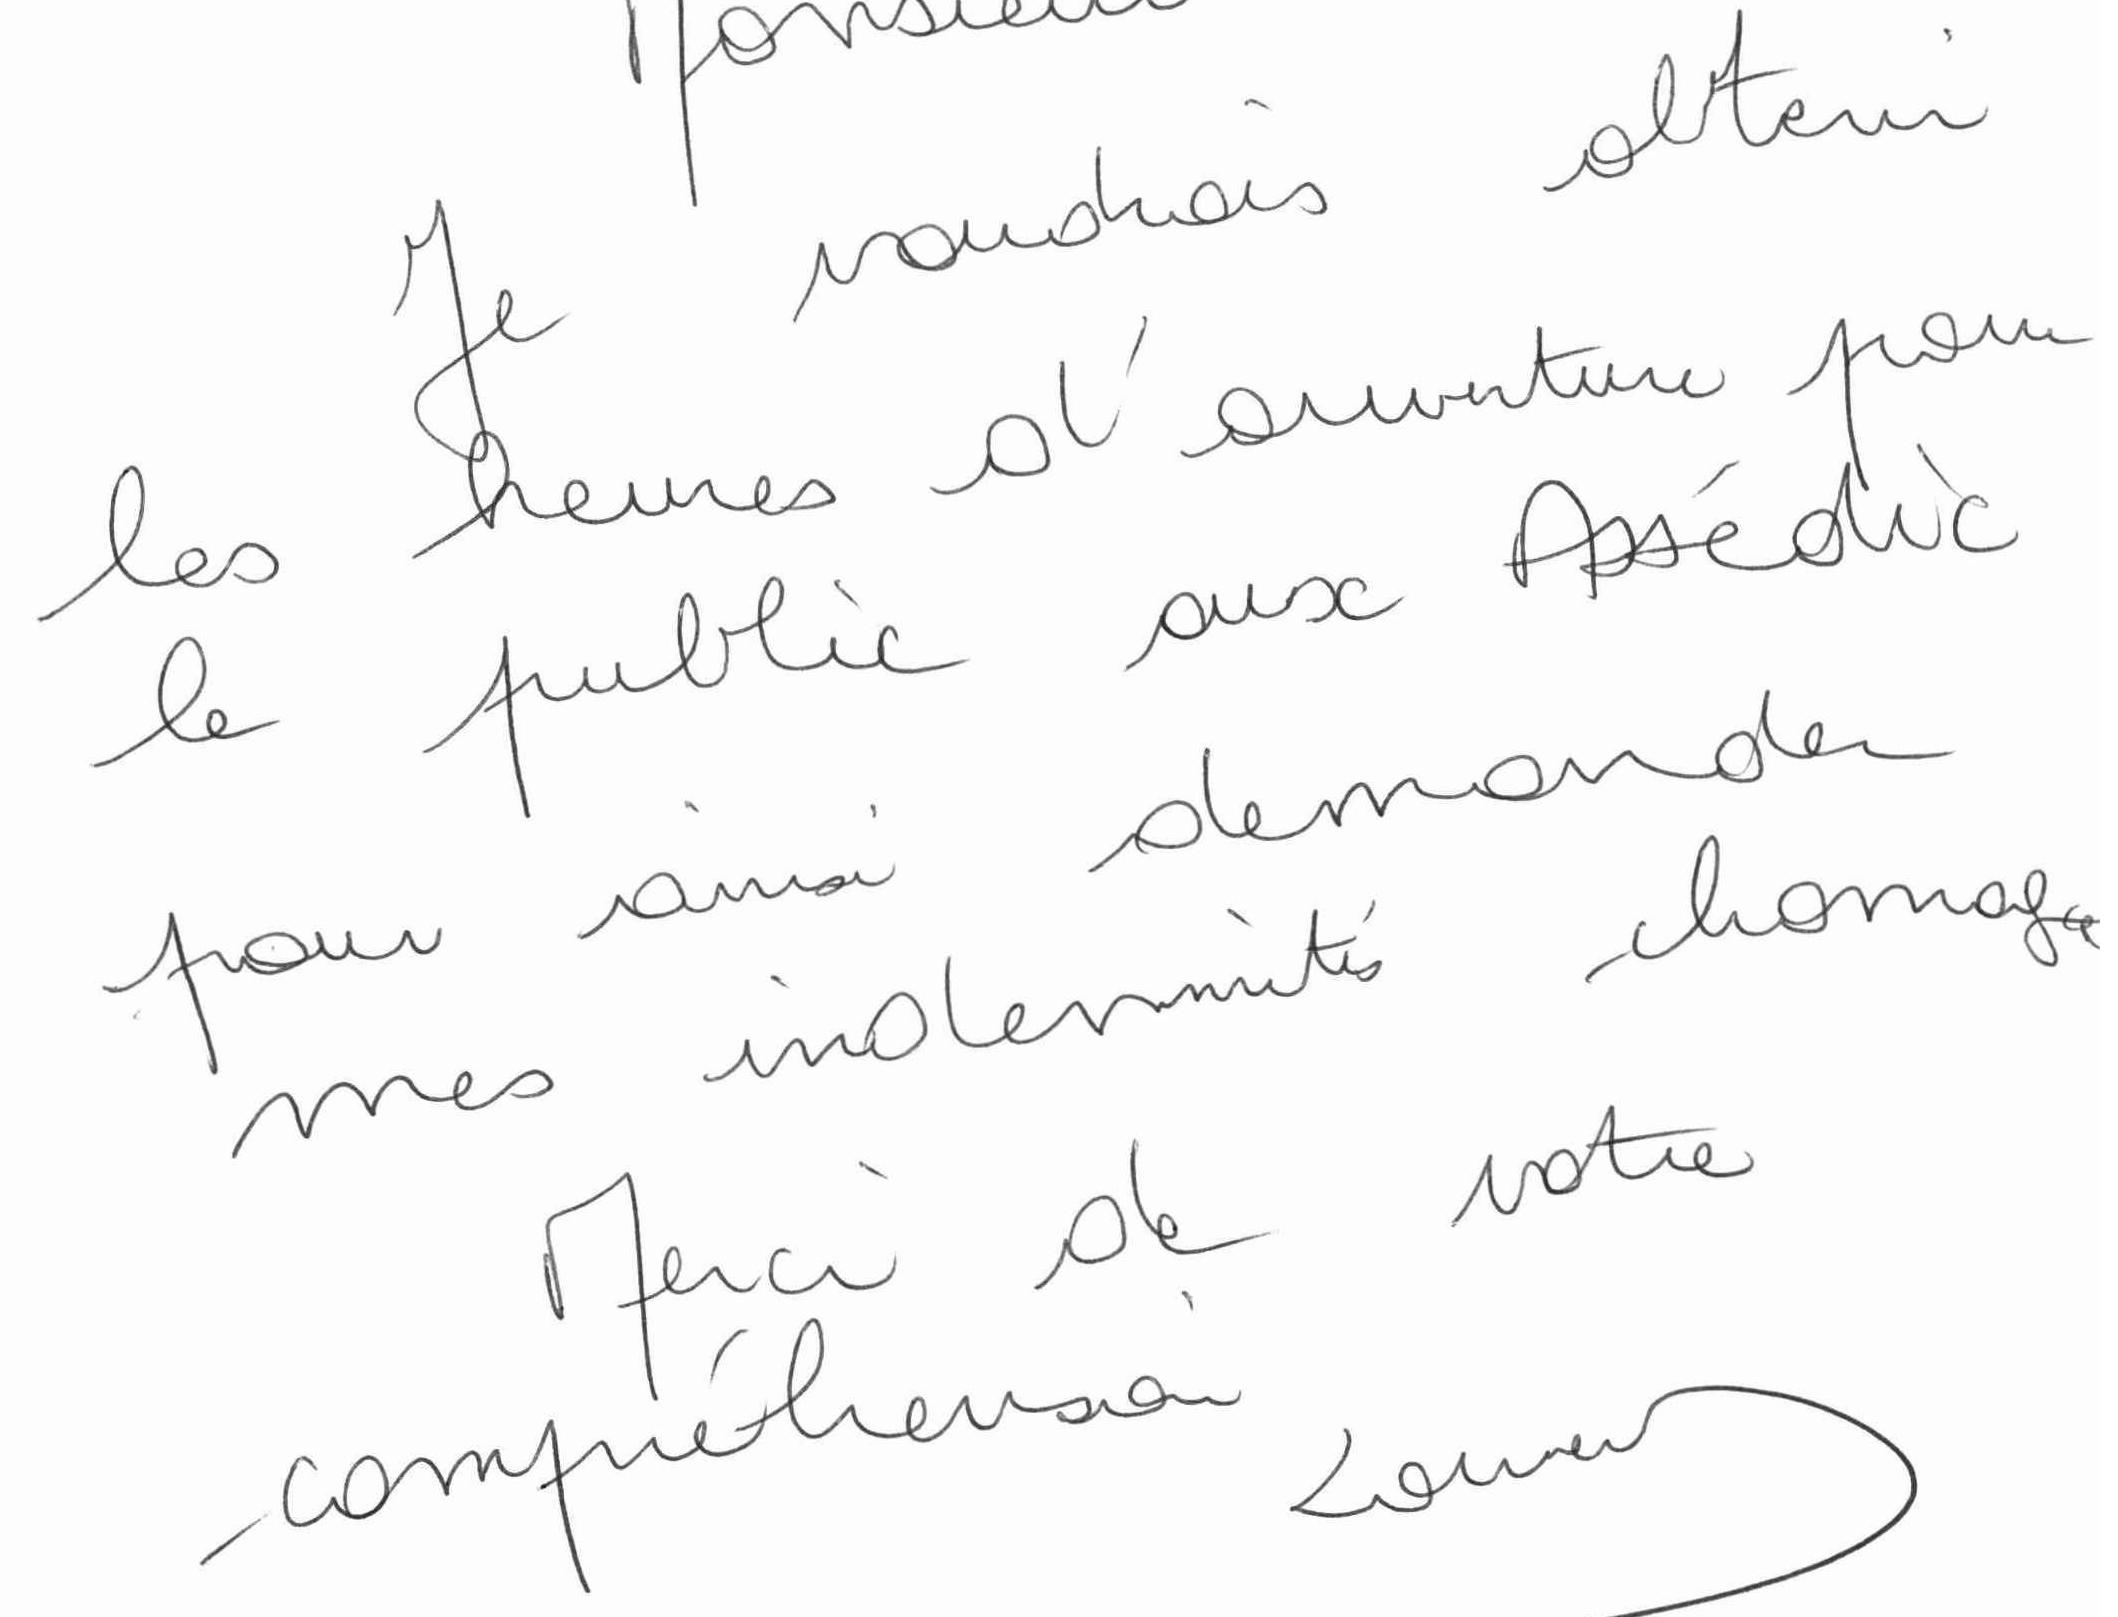 Monsieur
Je voudrais obtenir
les heures d'ouverture pour
le public aux Assédic
pour ainsi demander
mes indemnités chomage
Merci de votre
compréhension